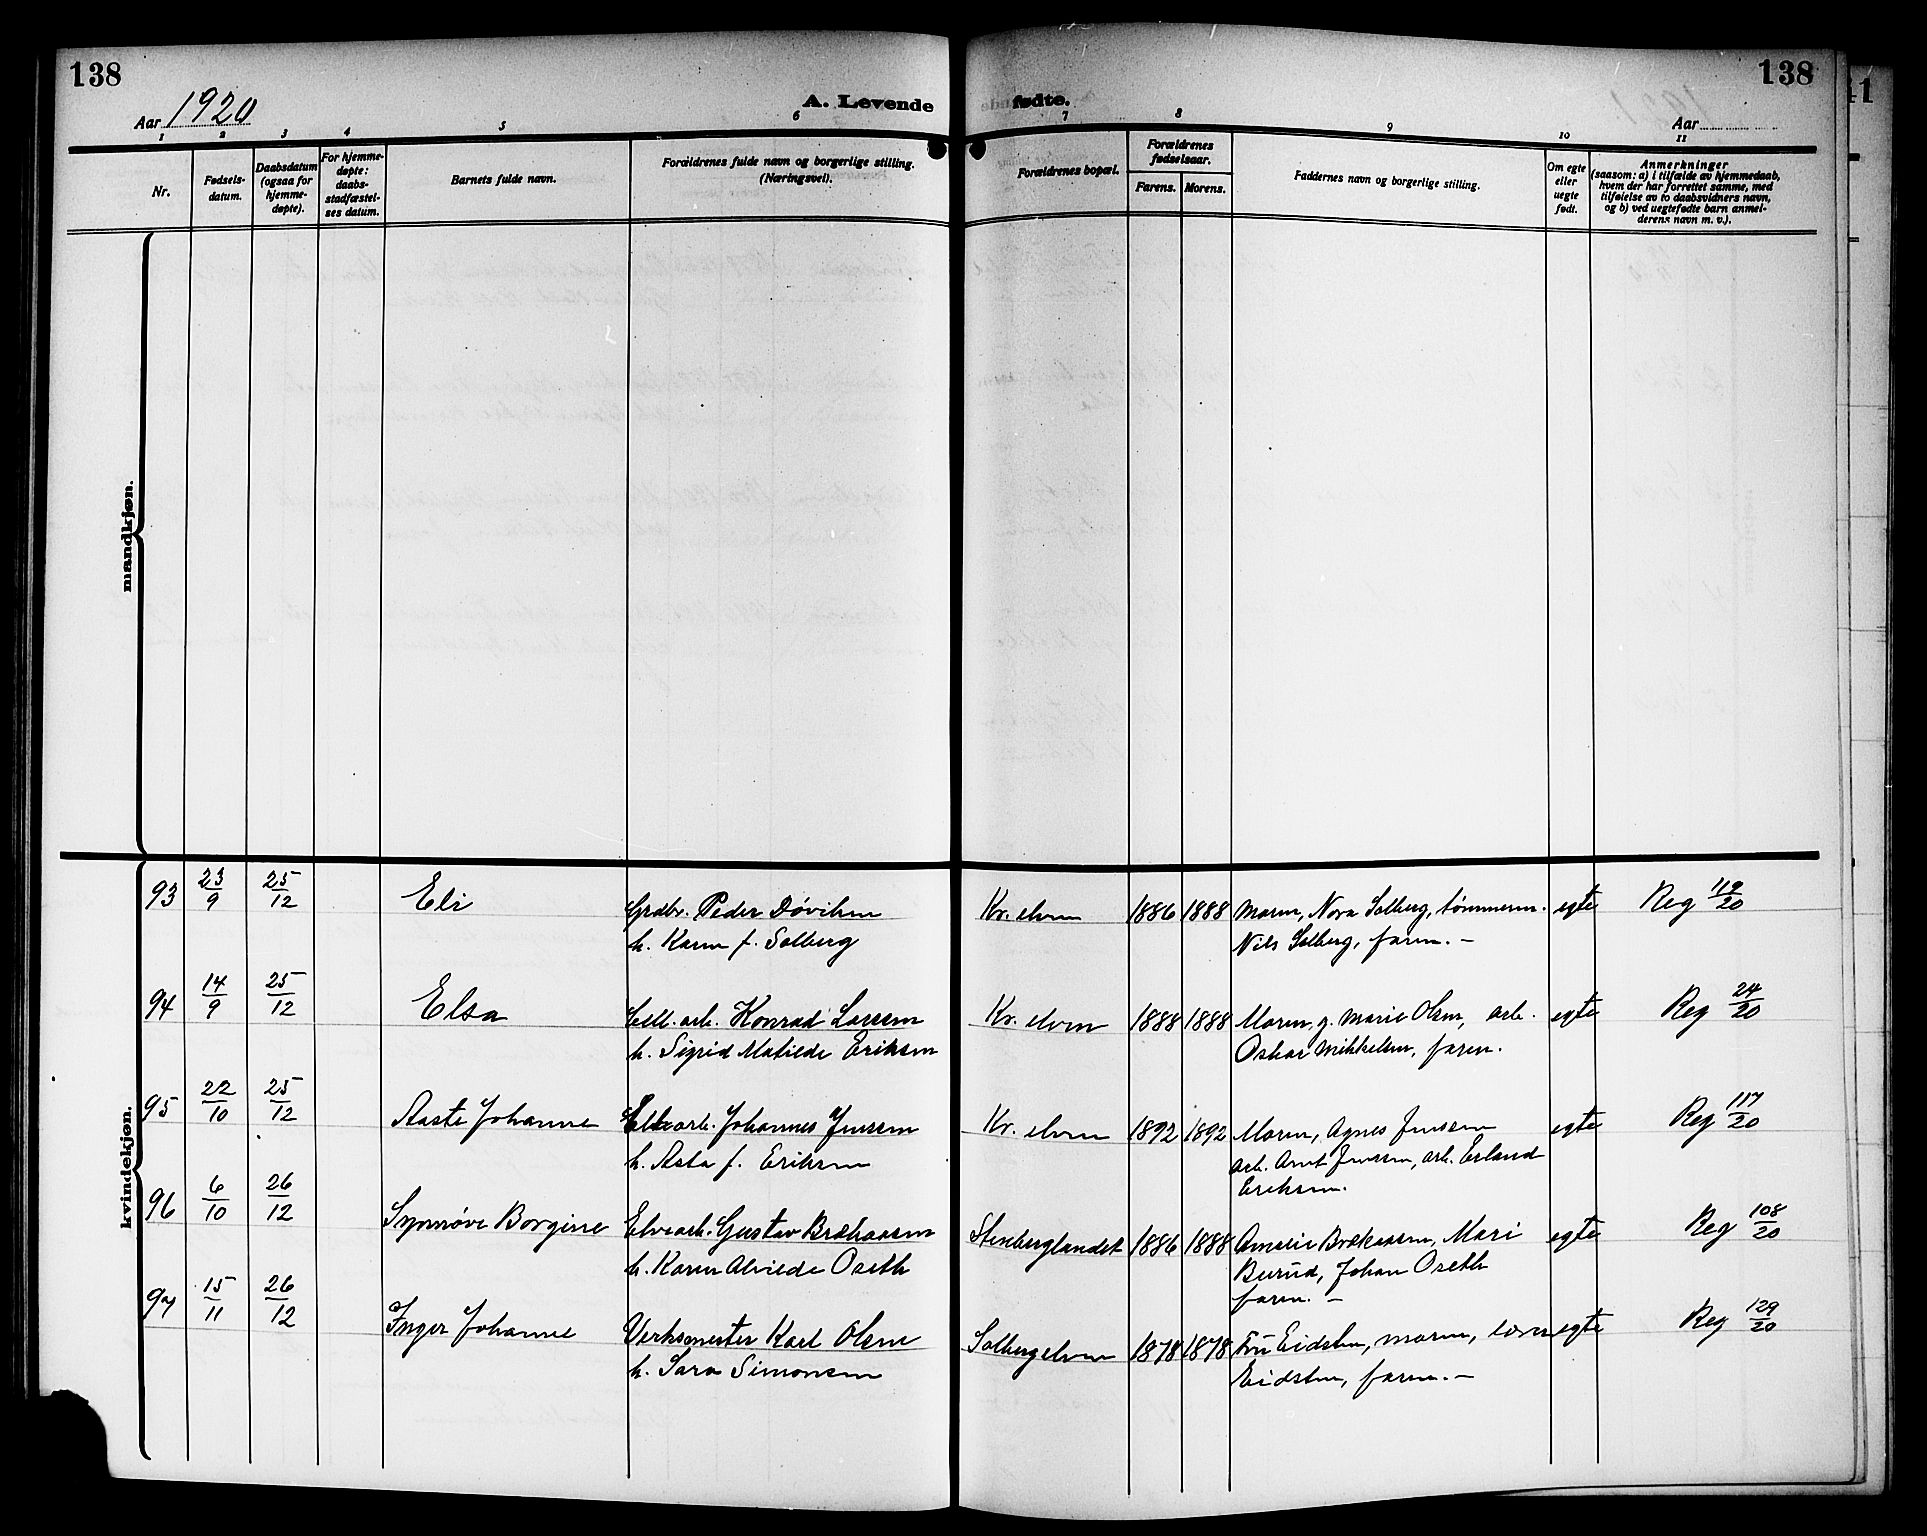 138
138
Aar 1920
A. Levende
fødte.
Aar
1
2
3
4
5
6
7
8
9
10
11
Nr.
Fødsels-
datum.
Daabsdatum
(ogsaa for
hjemme-
døpte).
For hjemme-
døpte:
daabs-
stadfæstel-
ses datum.
Barnets fulde navn.
Forældrenes fulde navn og borgerlige stilling.
(Næringsvei).
Forældrenes bopæl.
Forældrenes
fødselsaar.
Farens.
Morens.
Faddernes navn og borgerlige stilling.
Om egte
eller
uegte
født.
Anmerkninger
(saasom: a) i tilfælde av hjemmedaab,
hvem der har forrettet samme, med
tilføielse av to daabsvidners navn,
og b) ved uegtefødte barn anmel-
derens navn m. v.).
mandkjøn.
kvindekjøn.
93 23/9 25/12 Eli Grdbr. Peder Døviken Kr. elven 1886 1888 Moren, Nora Solberg, tømmerm. egte Reg 119/20
h. Karen f. Solberg Nils Solberg, faren. –
94 14/9 25/12 Elsa Cell. arb. Konrad Larsen Kr. elven 1888 1888 Moren, g. Marie Olsen, arb. egte Reg 24/20
h. Sigrid Matilde Eriksen Oskar Mikkelsen, faren.
95 22/10 25/12 Aaste Johanne arb. Johannes Jenssen Kr. elven 1892 1892 Moren, Agnes Jenssen egte Reg 117/20
h. Asta f. Eriksen arb. Arnt Jenssen, arb. Erland
Eriksen.
96 6/10 26/12 Synnøve Borginie Elvearb. Gustav Brækaasen Stenberglandet 1886 1888 Amalie Brækaasen, Mari egte Reg 108/20
h. Karen Alvilde Oseth Burud, Johan Oseth
faren. –
97 15/11 26/12 Inger Johanne Verksmester Karl Olsen Solbergelven 1878 1878 Fru Eidsten, moren, lærer egte Reg 129/20
h. Sara Simonsen Eidsten, faren. –